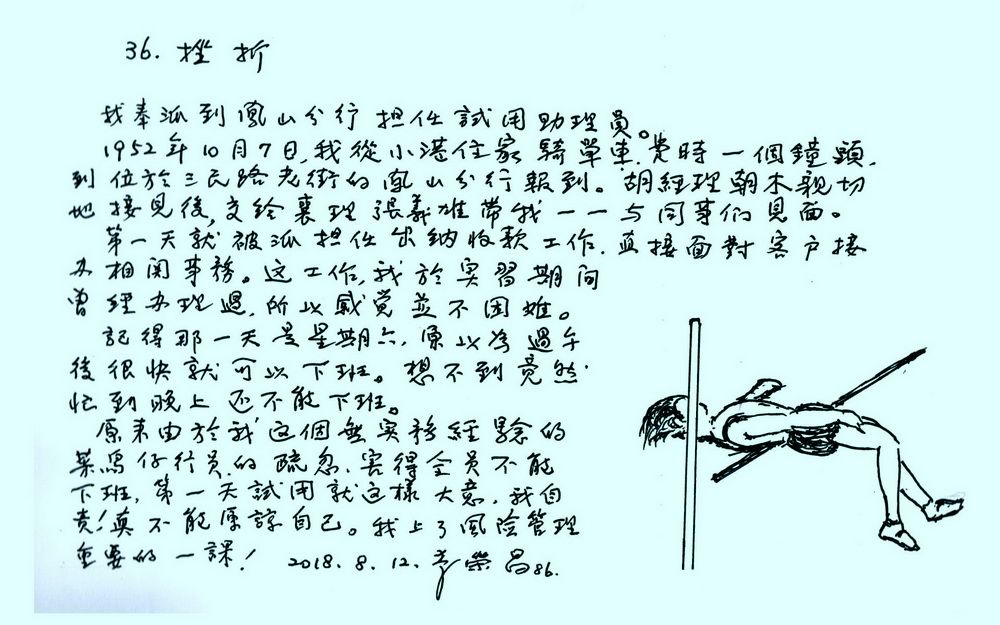 36. 挫折
我奉派到鳳山分行担任試用助理員。
1952年10月7日,我從小港住家騎單車,費時一個鐘頭,
到位於三民路老街的鳳山分行報到。胡經理朝木親切
地接見後,交給襄理張義雄帶我一一与同事们見面。
第一天就被派担任出纳收款工作,直接面對客户接
办相関事務。这工作,我於实習期间
曾经办理過,所以感覚並不困难。
記得那一天是星期六,原以為過午
後很快就可以下班。想不到竟然
忙到晚上还不能下班。
原来由於我这個無实務经验的
菜鳥仔行員的疏忽,害得全員不能
下班,第一天試用就这樣大意,我自
责!真不能原諒自己。我上了風险管理
重要的一課! 2018.8.12.荣昌86.